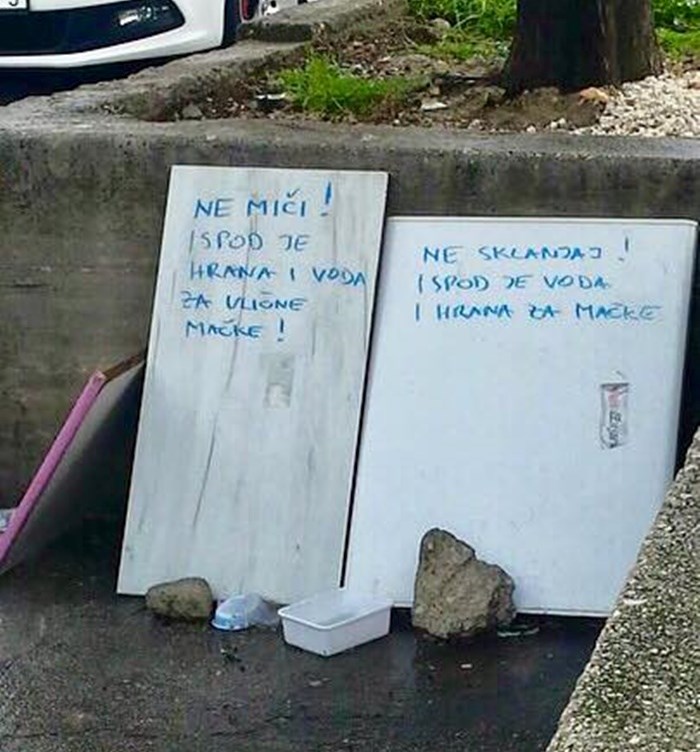 NE MIČI!
ISPOD JE
HRANA I VODA
ZA ULIČNE
MAČKE!
NE SKLANJAJ!
ISPOD JE VODA
I HRANA ZA MAČKE